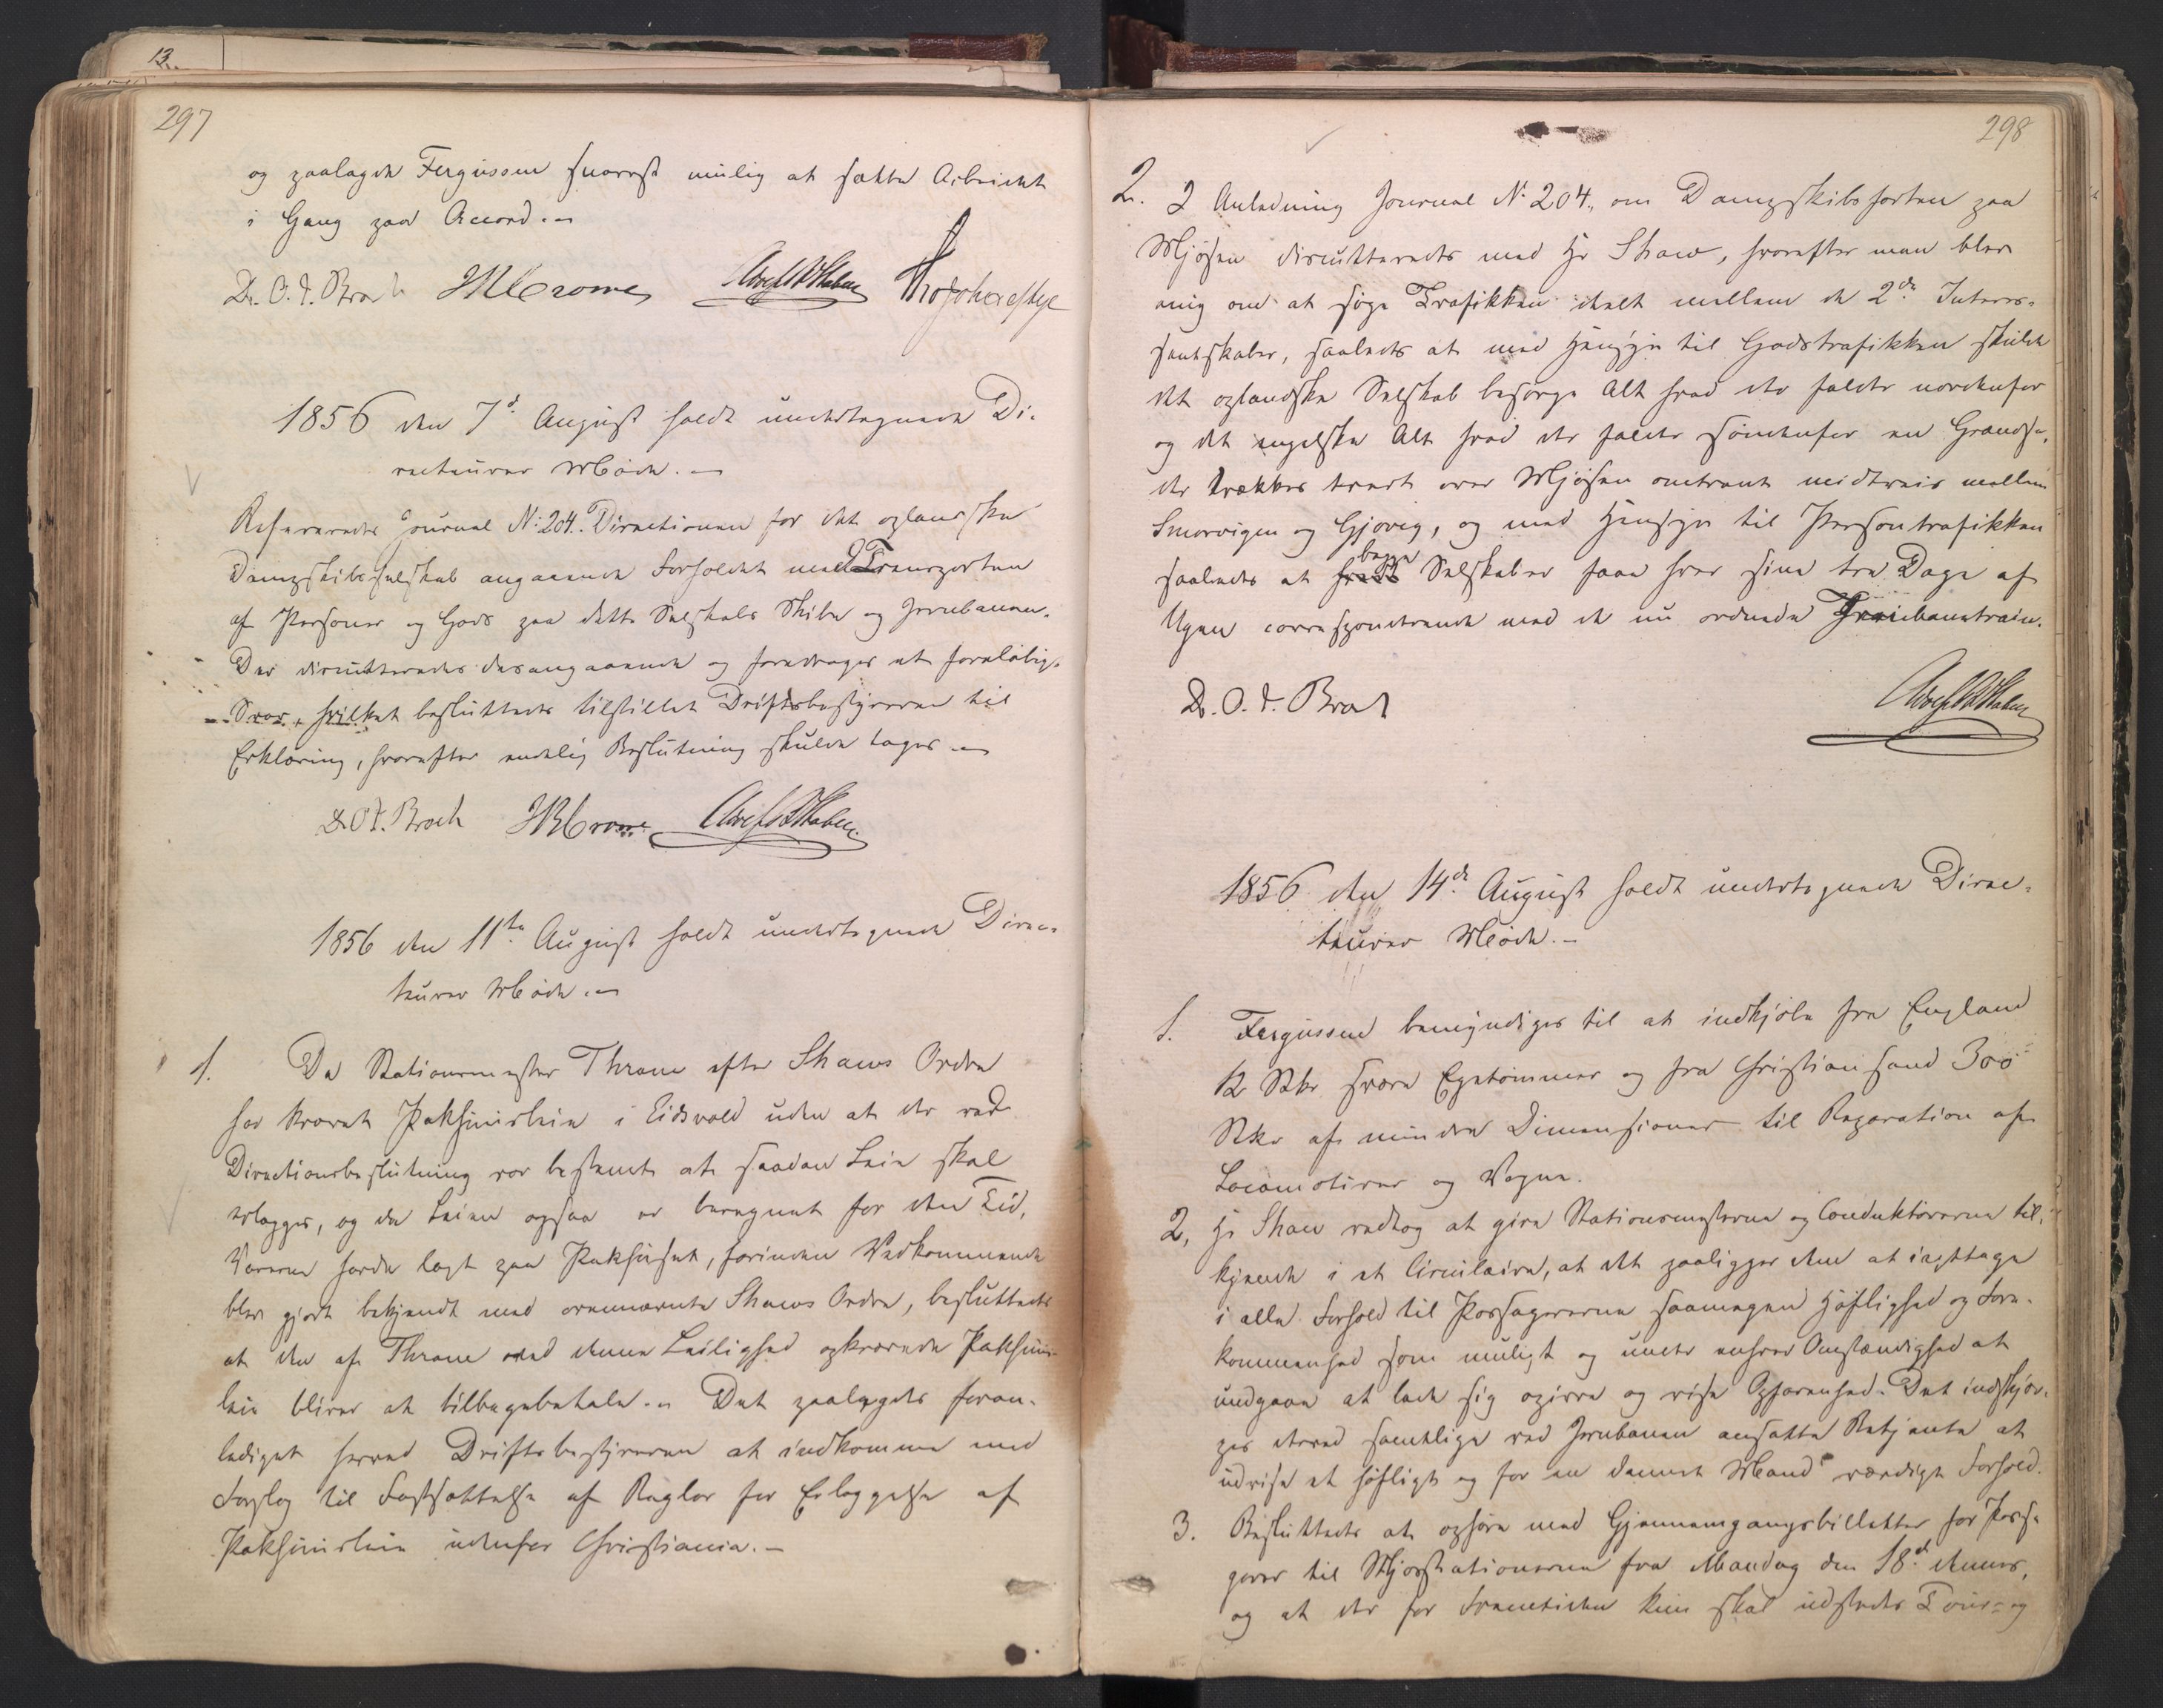 13.
297
og paalagde Fergusson snarest mulig at sætte Arbeidet
i Gang paa Accord.
Dr. O. J. Broch HRCrowe
1856 den 7d August holdt undertegnede Di-
recteurer Möde.
Refereredes Journal No 204. Directionen for det oplandske
Dampskibsselskab angaaende Forholdet med Transporten
af Personer og Gods paa dette Selskabs Skibe og Jernbanen.
Der discutteredes desangaaende og foredroges et foreløbigt
Svar, hvilket besluttedes tilstillet Driftsbestyreren til
Erklæring, hvorefter endelig Beslutning skulde tages.
Dr O J. Broch HRCrowe
1856 den 11te August holdt undertegnede Direc-
teurer Möde.
1. Da Stationsmester Thrane efter Shaws Ordre
har krævet Pakhuusleie i Eidsvold uden at der ved
Directionsbeslutning var bestemt at saadan Leie skal
erlægges, og da Leien ogsaa er beregnet for den Tid,
Varerne havde lagt paa Pakhuset, forinden Vedkommende
blev gjort bekjendt med ovennævnte Shaws Ordre, besluttedes
at den af Thrane ved denne Leilighed opkrævede Pakhuus-
leie bliver at tilbagebetale. Det paalagdes foran-
lediget herved Driftsbestyreren at indkomme med
Forslag til Fastsættelse af Regler for Erlæggelse af
Pakhuusleie udenfor Christiania.
298
2. I Anledning Journal No 204, om Dampskibsfarten paa
Mjøsen discutteredes med Hr Shaw, hvorefter man blev
enig om at søge Trafikken deelt mellem de 2de Interes-
sentskaber, saaledes at med Hensyn til Godstrafikken skulde
det oplandske Selskab besørge Alt hvad der falder nordenfor
og det engelske Alt hvad der falder söndenfor en Grændse,
der trækkes tvert over Mjøsen omtrent midtveis mellem
Smorvigen og Gjøvig, og med Hensyn til Persontrafikken
saaledes at begge Selskaber faae hver sine tre Dage af
Ugen correspondrende med de nu ordnede Jernbanetrain.
Dr. O. J. Broch
1856 den 14de August holdt undertegnede Direc-
teurer Möde.
1. Fergusson bemyndiges til at indkjöbe fra England
12 Stkr svære Egetömmer og fra Christiansand 300
Stkr af mindre Dimensioner til Reparation af
Locomotiver og Vogne.
2, Hr Shaw vedtog at give Stationsmesterne og Conduktörerne til-
kjende i et Circulaire, at det paaligger dem at iagttage
i alle Forhold til Passagererne saamegen Höflighed og Fore-
kommenhed som muligt og under enhver Omstændighed at
undgaae at lade sig opirre og vise Opfarenhed. Det indskjær-
pes derved samtlige ved Jernbanen ansatte Betjente at
udvise et höfligt og for en dannet Mand værdigt Forhold.
3. Besluttedes at ophöre med Gjennemgangsbilletter for Passa-
gerer til Mjösstationerne fra Mandag den 18d dennes,
og at der for Fremtiden kun skal udstedes Tour- og